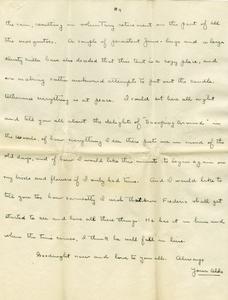 #4
the rain, resulting in voluntary retirement on the part of all
the mosquitoes. A couple of persistent June-bugs and a large
dusty miller have also decided that this tent is a cozy place, and
are making rather awkward attempts to put out the candle.
Otherwise everything is at peace. I could sit here all night
and tell you all about the delights of "Snooping Around" in
the woods, of how everything I see there puts me in mind of the
old days, and of how I would like this minute to begin again on
my birds and flowers if I only had time. And I would like to
tell you too how earnestly I wish that Frederic shall get
started to see and love all these things. He has it in him and
when the time comes, I think he will fall in line.
Goodnight now and love to you all. Always
Your Aldo